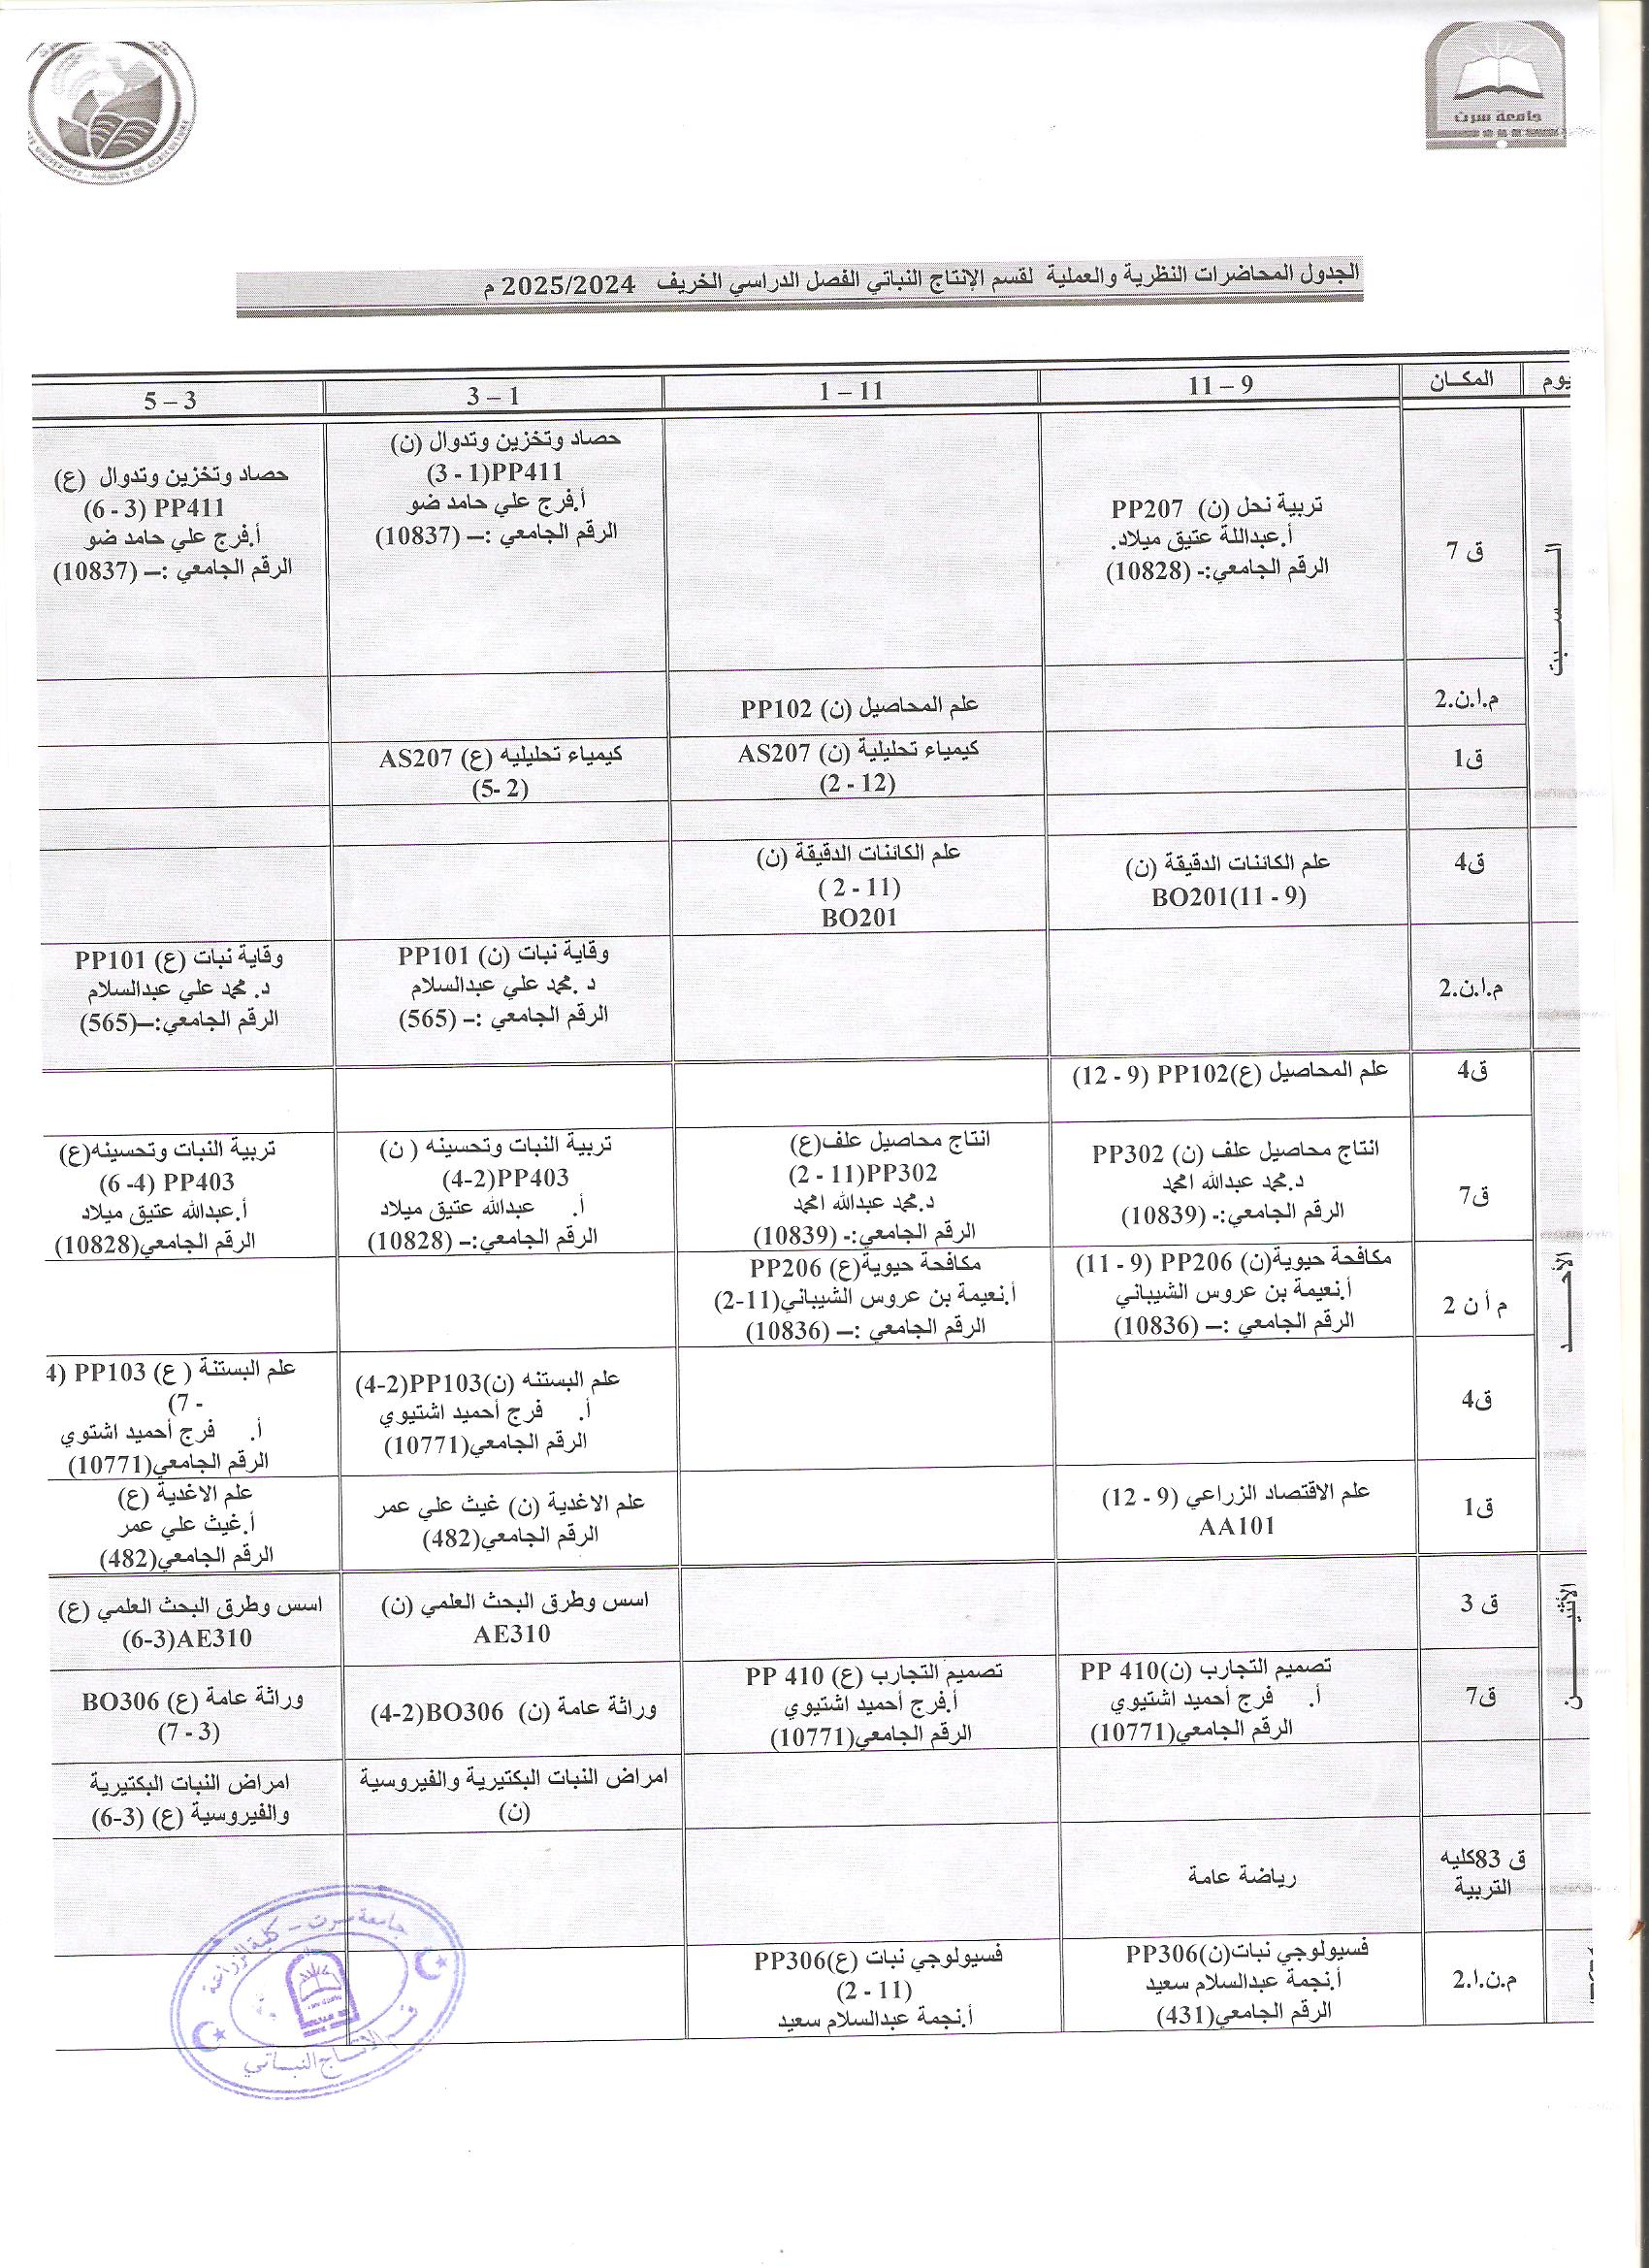 جامعة سرت
الجدول المحاضرات النظرية والعملية لقسم الإنتاج النباتي الفصل الدراسي الخريف 2025/2024 م
يوم المكان 9 – 11 11 – 1 1 – 3 3 – 5
الـــسبت
ق 7
تربية نحل (ن) PP207
أ.عبداللة عتيق ميلاد.
الرقم الجامعي:- (10828)
حصاد وتخزين وتدوال (ن)
PP411(1 - 3)
أ.فرج علي حامد ضو
الرقم الجامعي :– (10837)
حصاد وتخزين وتدوال (ع)
PP411 (3 - 6)
أ.فرج علي حامد ضو
الرقم الجامعي :– (10837)
م.ا.ن.2
علم المحاصيل (ن) PP102
ق1
كيمياء تحليلية (ن) AS207
(12 - 2)
كيمياء تحليليه (ع) AS207
(2 -5)
ق4
علم الكائنات الدقيقة (ن)
BO201(11 - 9)
علم الكائنات الدقيقة (ن)
(11 - 2 )
BO201
م.ا.ن.2
وقاية نبات (ن) PP101
د .محمد علي عبدالسلام
الرقم الجامعي :– (565)
وقاية نبات (ع) PP101
د. محمد علي عبدالسلام
الرقم الجامعي:–(565)
الأحـــد
ق4
علم المحاصيل (ع)PP102 (9 - 12)
ق7
انتاج محاصيل علف (ن) PP302
د.محمد عبدالله امحمد
الرقم الجامعي:- (10839)
انتاج محاصيل علف(ع)
PP302(11 - 2)
د.محمد عبدالله امحمد
الرقم الجامعي:- (10839)
تربية النبات وتحسينه ( ن)
PP403(2-4)
أ. عبدالله عتيق ميلاد
الرقم الجامعي:– (10828)
تربية النبات وتحسينه(ع)
PP403 (4- 6)
أ.عبدالله عتيق ميلاد
الرقم الجامعي(10828)
م أ ن 2
مكافحة حيوية(ن) PP206 (9 - 11)
أ.نعيمة بن عروس الشيباني
الرقم الجامعي :– (10836)
مكافحة حيوية(ع) PP206
أ.نعيمة بن عروس الشيباني(11-2)
الرقم الجامعي :– (10836)
ق4
علم البستنه (ن)PP103(2-4)
أ. فرج أحميد اشتيوي
الرقم الجامعي(10771)
علم البستنة ( ع) PP103 (4
- 7)
أ. فرج أحميد اشتوي
الرقم الجامعي(10771)
ق1
علم الاقتصاد الزراعي (9 - 12)
AA101
علم الاغدية (ن) غيث علي عمر
الرقم الجامعي(482)
علم الاغدية (ع)
أ.غيث علي عمر
الرقم الجامعي(482)
الاثنيـــن
ق 3
اسس وطرق البحث العلمي (ن)
AE310
اسس وطرق البحث العلمي (ع)
AE310(3-6)
ق7
تصميم التجارب (ن)PP 410
أ. فرج أحميد اشتيوي
الرقم الجامعي(10771)
تصميم التجارب (ع) PP 410
أ.فرج أحميد اشتيوي
الرقم الجامعي(10771)
وراثة عامة (ن) BO306(2-4)
وراثة عامة (ع) BO306
(3 - 7)
امراض النبات البكتيرية والفيروسية
(ن)
امراض النبات البكتيرية
والفيروسية (ع) (3-6)
ق 83كليه
التربية
رياضة عامة
م.ن.ا.2
فسيولوجي نبات(ن)PP306
أ.نجمة عبدالسلام سعيد
الرقم الجامعي(431)
فسيولوجي نبات (ع)PP306
(11 - 2)
أ.نجمة عبدالسلام سعيد
جامعة سرت - كلية الزراعة
قسم الانتاج النباتي